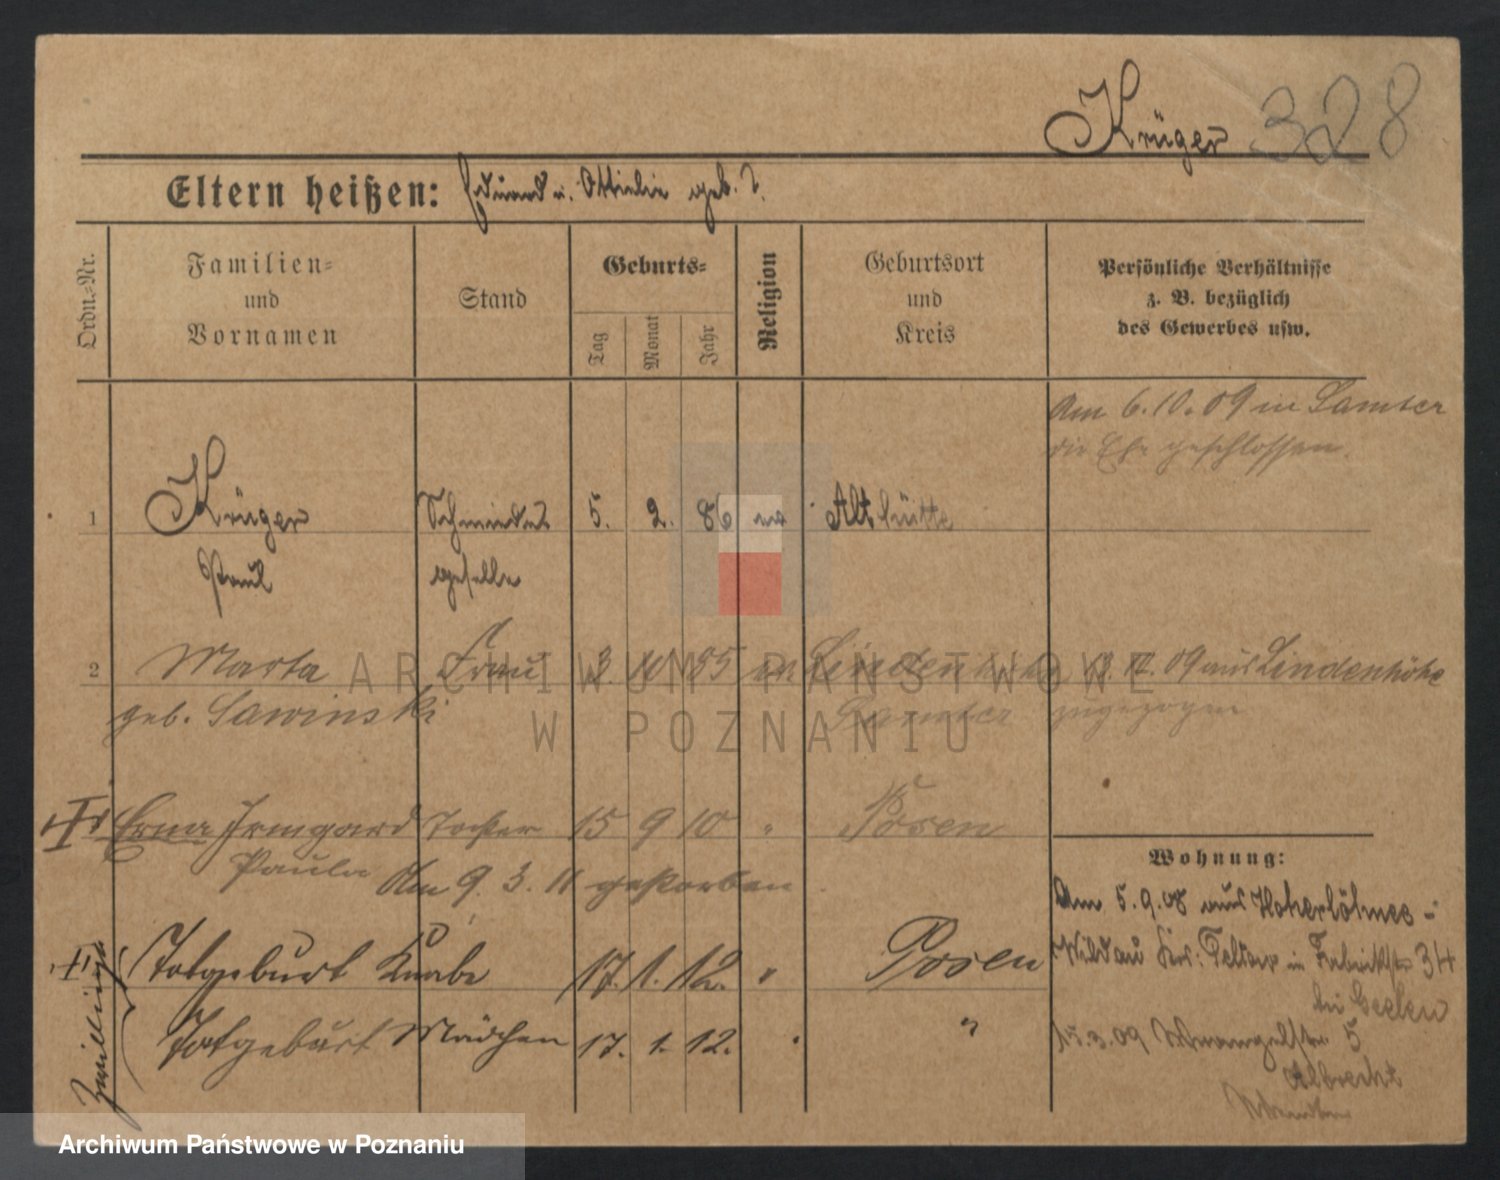 Krüger 328
Eltern heißen: Eduard u. Ottilie geb. ?
Ordn.=Nr.
Familien=
und
Vornamen
Stand
Geburts=
Tag
Monat
Jahr
Religion
Geburtsort
und
Kreis
Persönliche Verhältnisse
z. B. bezüglich
des Gewerbes usw.
Am 6.10.09 in Samter
die Ehe geschlossen.
1 Krüger Schmiede 5. 2. 86 ev Althütte
Paul geselle
2 Marta Frau 3. 85 ev Lindenhöhe 3. 09 aus Lindenhöhe
geb. Sawinski Samter zugezogen
Erna Irmgard Tochter 15 9 10 " Posen
Paula Am 9. 3. 11 gestorben
Wohnung:
Am 5.9.08 aus Hoherlöhme -
Wildau Krs. Teltow in Fabrikstr 34
bei
15.3.09 5
Albrecht
Zwillinge
Totgeburt Knabe 17. 1. 12. " Posen
Totgeburt Mädchen 17. 1. 12. "
ARCHIWUM PAŃSTWOWE
W POZNANIU
Archiwum Państwowe w Poznaniu